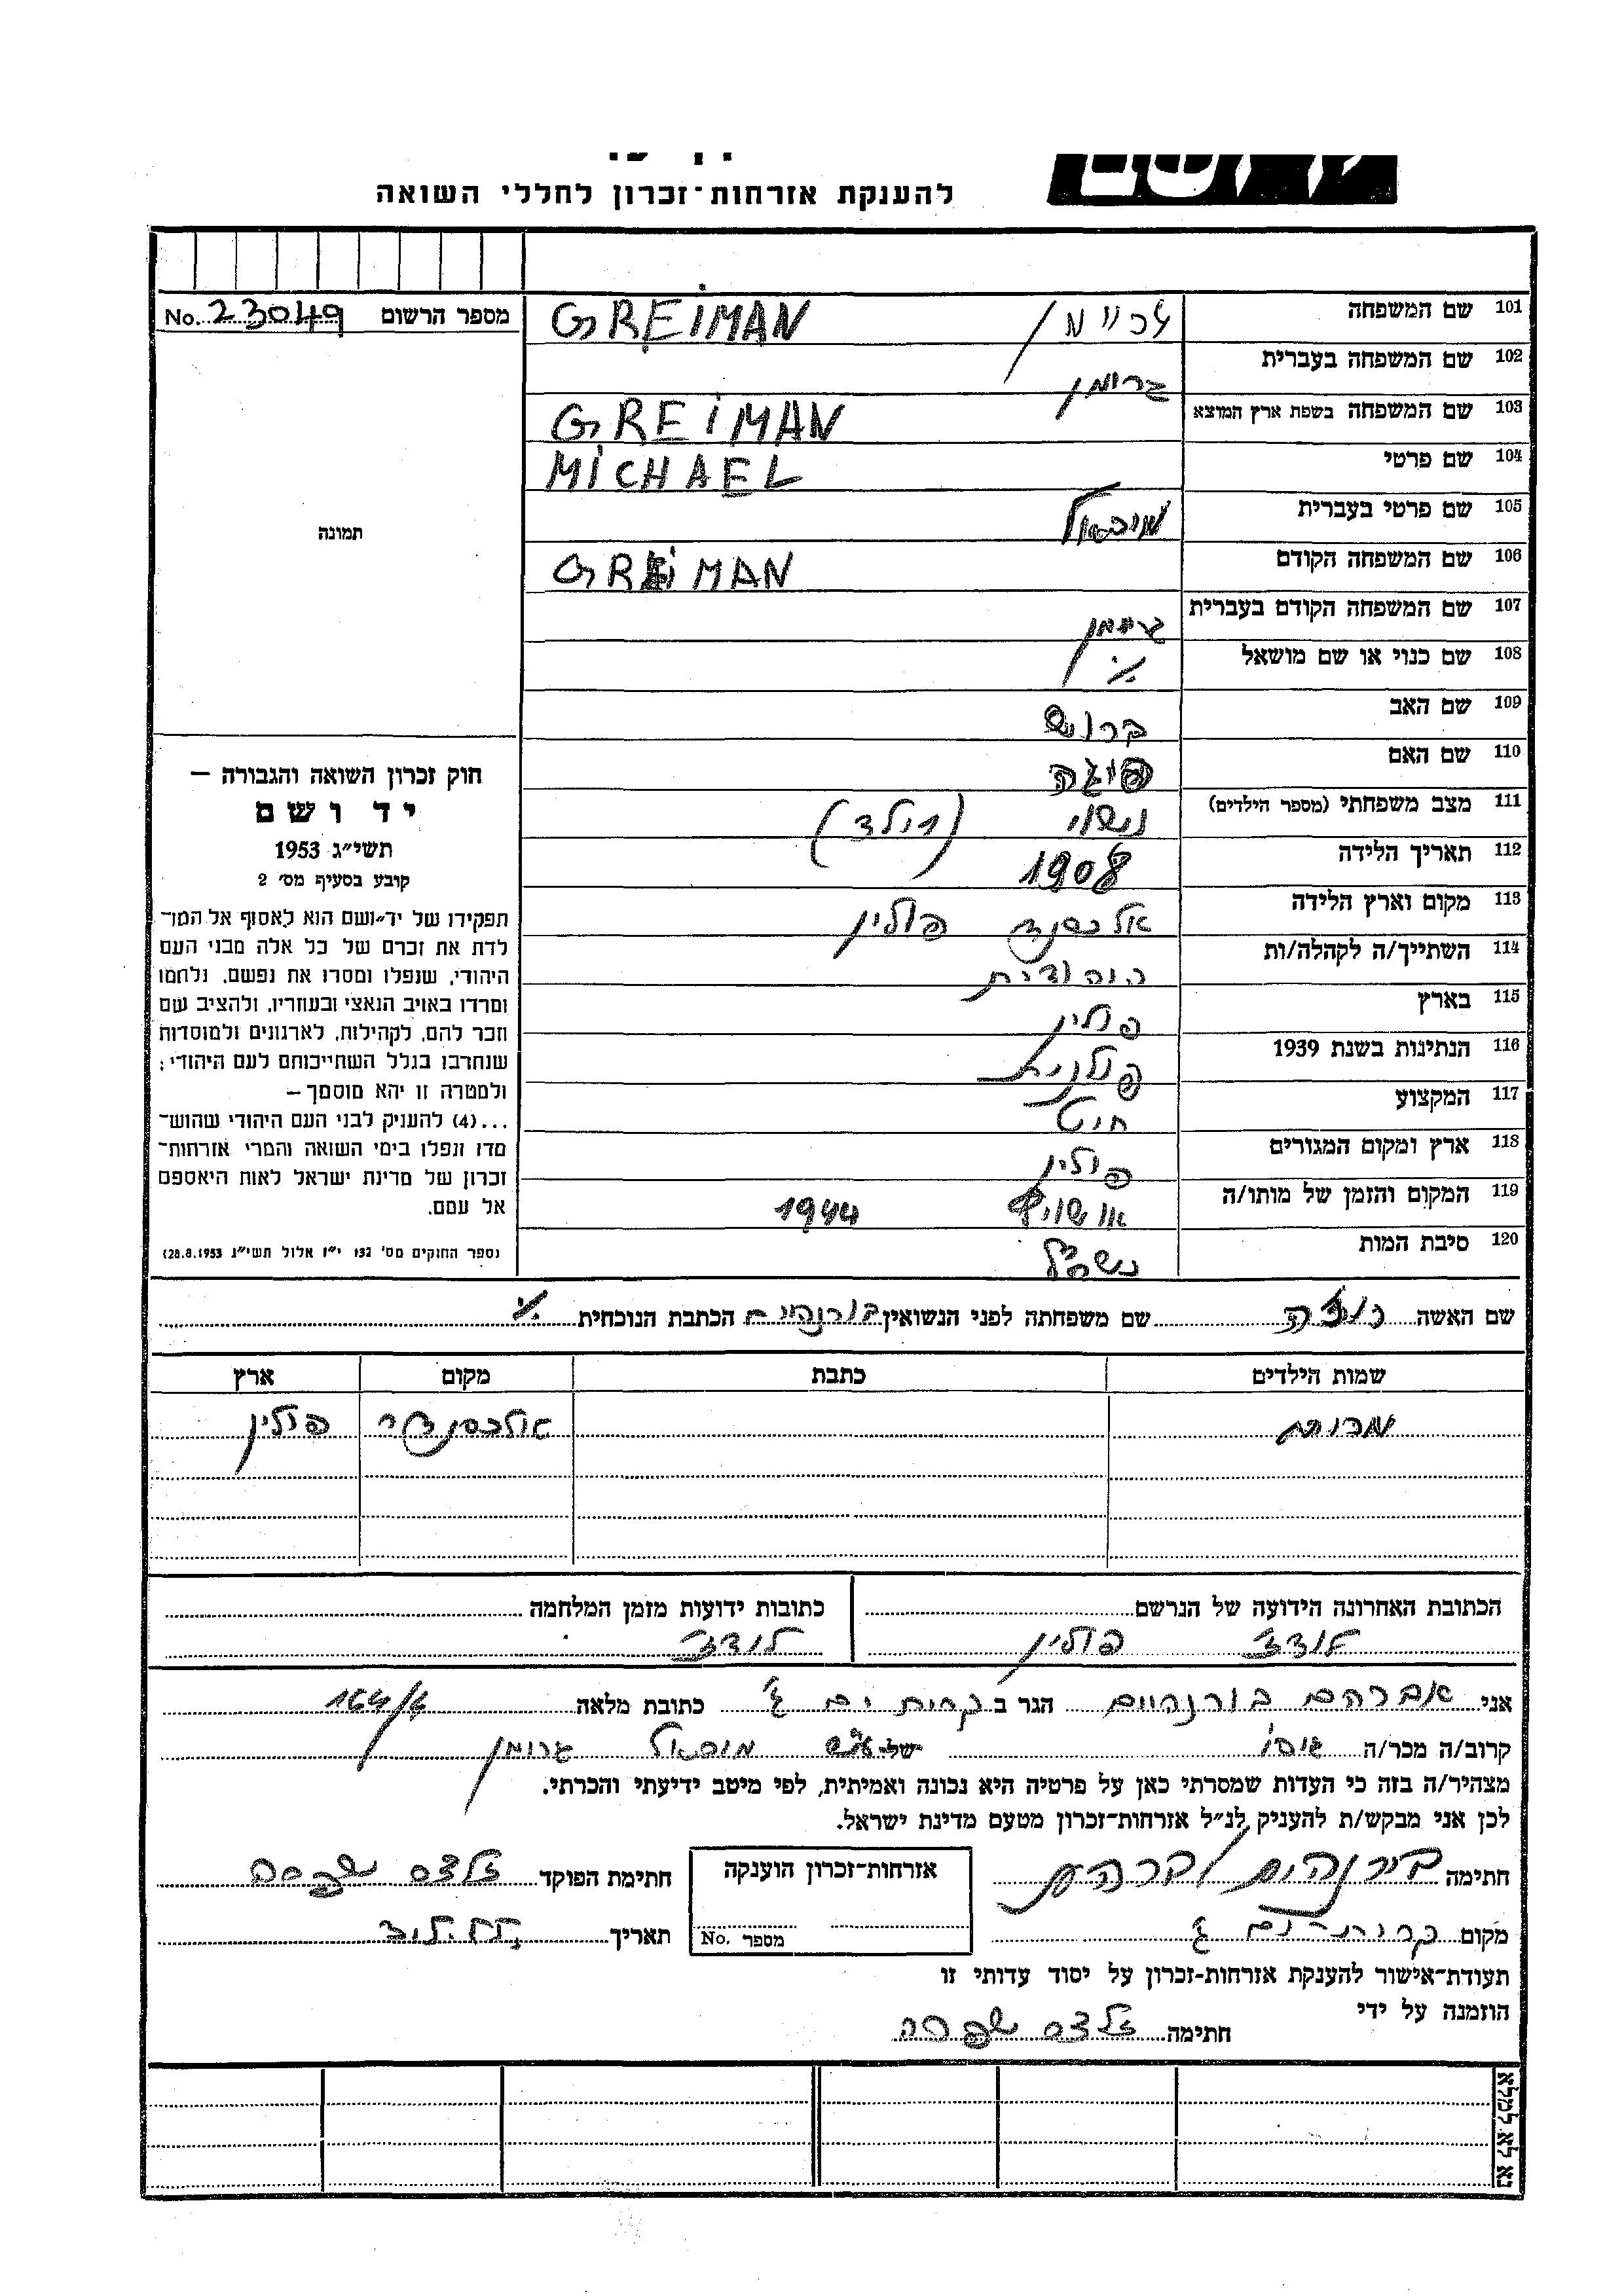 להענקת אזרחות־זכרון לחללי השואה
מספר הרשום No. 23049
101 שם המשפחה GREIMAN
102 שם המשפחה בעברית גרימן
103 שם המשפחה בשפת ארץ המוצא GREIMAN
104 שם פרטי MICHAEL
105 שם פרטי בעברית מיכאל
106 שם המשפחה הקודם GREIMAN
107 שם המשפחה הקודם בעברית גריימן
108 שם כנוי או שם מושאל ./.
109 שם האב
110 שם האם פיגה
111 מצב משפחתי (מספר הילדים) נישוי (וילד)
112 תאריך הלידה 1908
113 מקום וארץ הלידה פולין
114 השתייך/ה לקהלה/ות היהודית
115 בארץ פולין
116 הנתינות בשנת 1939 פולנית
117 המקצוע חיט
118 ארץ ומקום המגורים פולין
119 המקום והזמן של מותו/ה אושויץ 1944
120 סיבת המות
תמונה
חוק זכרון השואה והגבורה —
יד ושם
תשי״ג 1953
קובע בסעיף מס׳ 2
תפקידו של יד־ושם הוא לאסוף אל המו־
לדת את זכרם של כל אלה מבני העם
היהודי, שנפלו ומסרו את נפשם, נלחמו
ומרדו באויב הנאצי ובעוזריו, ולהציב שם
וזכר להם, לקהילות, לארגונים ולמוסדות
שנחרבו בגלל השתייכותם לעם היהודי;
ולמטרה זו יהא מוסמך —
...(4) להעניק לבני העם היהודי שהוש־
מדו ונפלו בימי השואה והמרי אזרחות־
זכרון של מדינת ישראל לאות היאספם
אל עמם.
(ספר החוקים מס׳ 132 י״ז אלול תשי״ג 28.8.1953)
שם האשה שם משפחתה לפני הנשואין בורנהיים הכתבת הנוכחית ./.
שמות הילדים כתבת מקום ארץ
אלכסנדרי פולין
הכתובת האחרונה הידועה של הנרשם
לודז׳ פולין
כתובות ידועות מזמן המלחמה
לודז׳
אני אברהם בורנהיים הגר ב קרית ים ג׳ כתובת מלאה 164/4
קרוב/ה מכר/ה גיסו של מיכאל גרימן
מצהיר/ה בזה כי העדות שמסרתי כאן על פרטיה היא נכונה ואמיתית, לפי מיטב ידיעתי והכרתי.
לכן אני מבקש/ת להעניק לנ״ל אזרחות־זכרון מטעם מדינת ישראל.
חתימה בורנהיים אברהם
מקום קרית־ים ג׳
אזרחות־זכרון הוענקה
מספר No.
חתימת הפוקד
תאריך
תעודת־אישור להענקת אזרחות־זכרון על יסוד עדותי זו
הוזמנה על ידי
חתימה
נא לא למלא